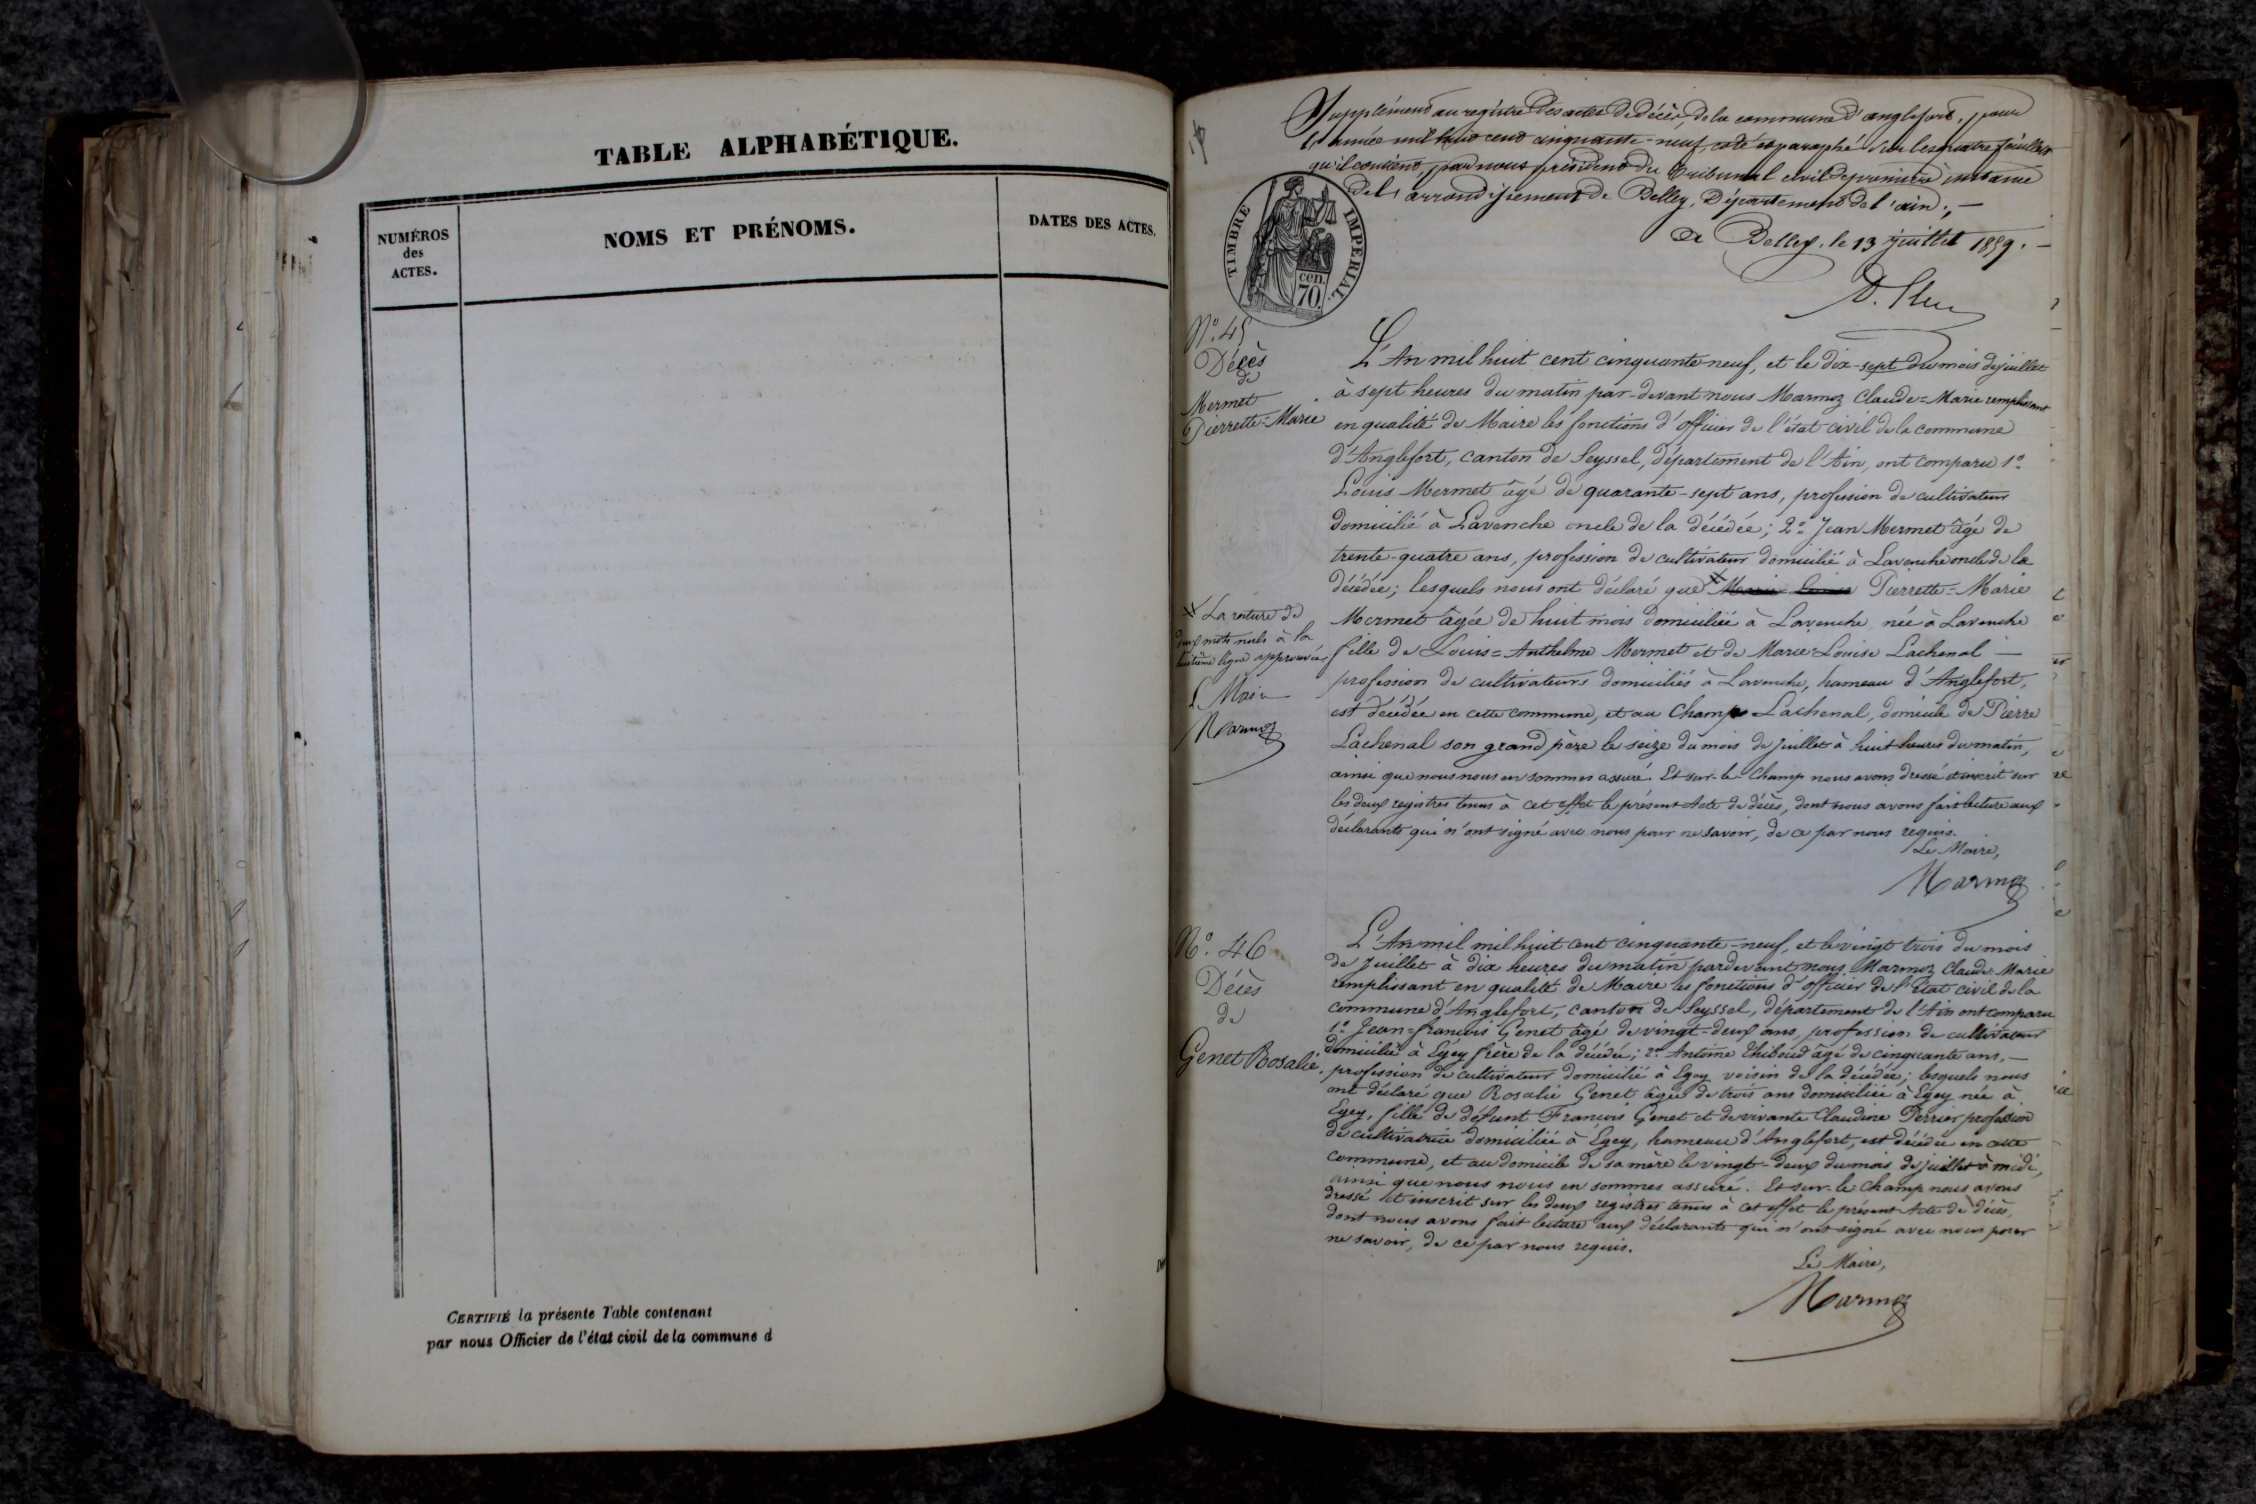 TABLE ALPHABÉTIQUE.
NUMÉROS
des
ACTES.
NOMS ET PRÉNOMS.
DATES DES ACTES.
CERTIFIÉ la présente Table contenant
par nous Officier de l'état civil de la commune d
Supplément au registre des actes de décès, de la commune d'anglefort, pour
l'année mil huit cent cinquante-neuf, coté et paraphé sur les quatre feuillets
qu'il contient, par nous président du Tribunal civil de première instance
de l'arrondissement de Belley, Département de l'ain.
Belley, le 13 juillet 1859.
TIMBRE IMPERIAL.
cen.
70.
N° 45
Décès
de
Mermet
Pierrette-Marie
L'An mil huit cent cinquante neuf, et le dix-sept du mois de juillet
à sept heures du matin par-devant nous Marmoz Claude-Marie remplissant
en qualité de Maire les fonctions d'officier de l'état civil de la commune
d'Anglefort, canton de Seyssel, département de l'Ain, ont comparu 1°
Louis Mermet âgé de quarante-sept ans, profession de cultivateur
domicilié à Lavenche oncle de la décédée; 2° Jean Mermet âgé de
trente-quatre ans, profession de cultivateur domicilié à Lavenche oncle de la
décédée; lesquels nous ont déclaré que Pierrette-Marie
Mermet âgée de huit mois domiciliée à Lavenche née à Lavenche
fille de Louis-Anthelme Mermet et de Marie-Louise Lachenal
profession de cultivateurs domiciliés à Lavenche, hameau d'Anglefort,
est décédée en cette commune, et au Champ Lachenal, domicile de Pierre
Lachenal son grand père le seize du mois de juillet à huit heures du matin,
ainsi que nous nous en sommes assuré. Et sur-le-champ nous avons dressé et inscrit sur
les deux registres tenus à cet effet le présent Acte de décès, dont nous avons fait lecture aux
déclarants qui n'ont signé avec nous pour ne savoir, de ce par nous requis.
Le Maire,
Marmoz
La rature de
deux mots nuls à la
huitième ligne approuvée
L Maire
Marmoz
N° 46
Décès
de
Genet Rosalie.
L'An mil mil huit cent cinquante-neuf, et le vingt trois du mois
de Juillet à dix heures du matin pardevant nous Marmoz Claude-Marie
remplissant en qualité de Maire les fonctions d'officier de l'Etat civil de la
commune d'Anglefort, canton de Seyssel, département de l'Ain ont comparu
1° Jean-françois Genet âgé de vingt-deux ans, profession de cultivateur
domicilié à Egey frère de la décédée; 2° Antoine Thiboud âgé de cinquante ans,
profession de cultivateur domicilié à Egey voisin de la décédée; lesquels nous
ont déclaré que Rosalie Genet âgée de trois ans domiciliée à Egey née à
Egey, fille de défunt François Genet et de vivante Claudine Perrier profession
de cultivatrice domiciliée à Egey, hameau d'Anglefort, est décédée en cette
commune, et au domicile de sa mère le vingt-deux du mois de juillet à midi,
ainsi que nous nous en sommes assuré. Et sur-le-champ nous avons
dressé et inscrit sur les deux registres tenus à cet effet le présent Acte de décès,
dont nous avons fait lecture aux déclarants qui n'ont signé avec nous pour
ne savoir, de ce par nous requis.
Le Maire,
Marmoz